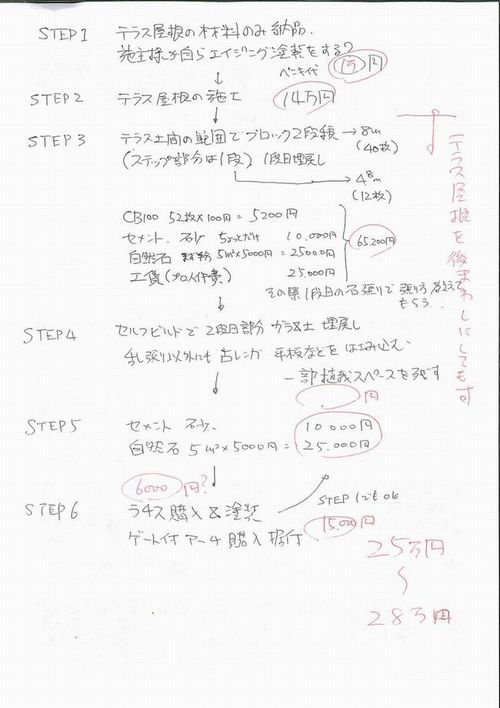 STEP1 テラス屋根の材料のみ納品.
施主様が自らエイジング塗装をする?
ペンキ代 1万円
↓
STEP2 テラス屋根の施工 14万円
↓
STEP3 テラス土間の範囲でブロック2段積 → 8m
(40枚)
(ステップ部分は1段) 1段目埋戻し
→ 4.8m
(12枚)
CB100 52枚×100円 = 5200円
セメント. 石砂 ちょっとだけ 10.000円
自然石 5m²×5000円 = 25000円
65.200円
工賃(プロ人件費) 25.000円
その際1段目の石張りで張り方教えてもらう..
↓
STEP4 セルフビルドで2段目部分 ガラ&土 埋戻し
乱張り以外にも古レンガ 平板などをはめ込む.
一部植栽スペースを残す
円
↓
STEP5 セメント 石砂. 10000円
自然石 5m²×5000円 = 25.000円
6000円?
↓
STEP6 ラチス購入&塗装 STEP1でもok
ゲート付アーチ購入 据付 15.000円
25万円
~
28万円
テラス屋根を後まわしにしても可